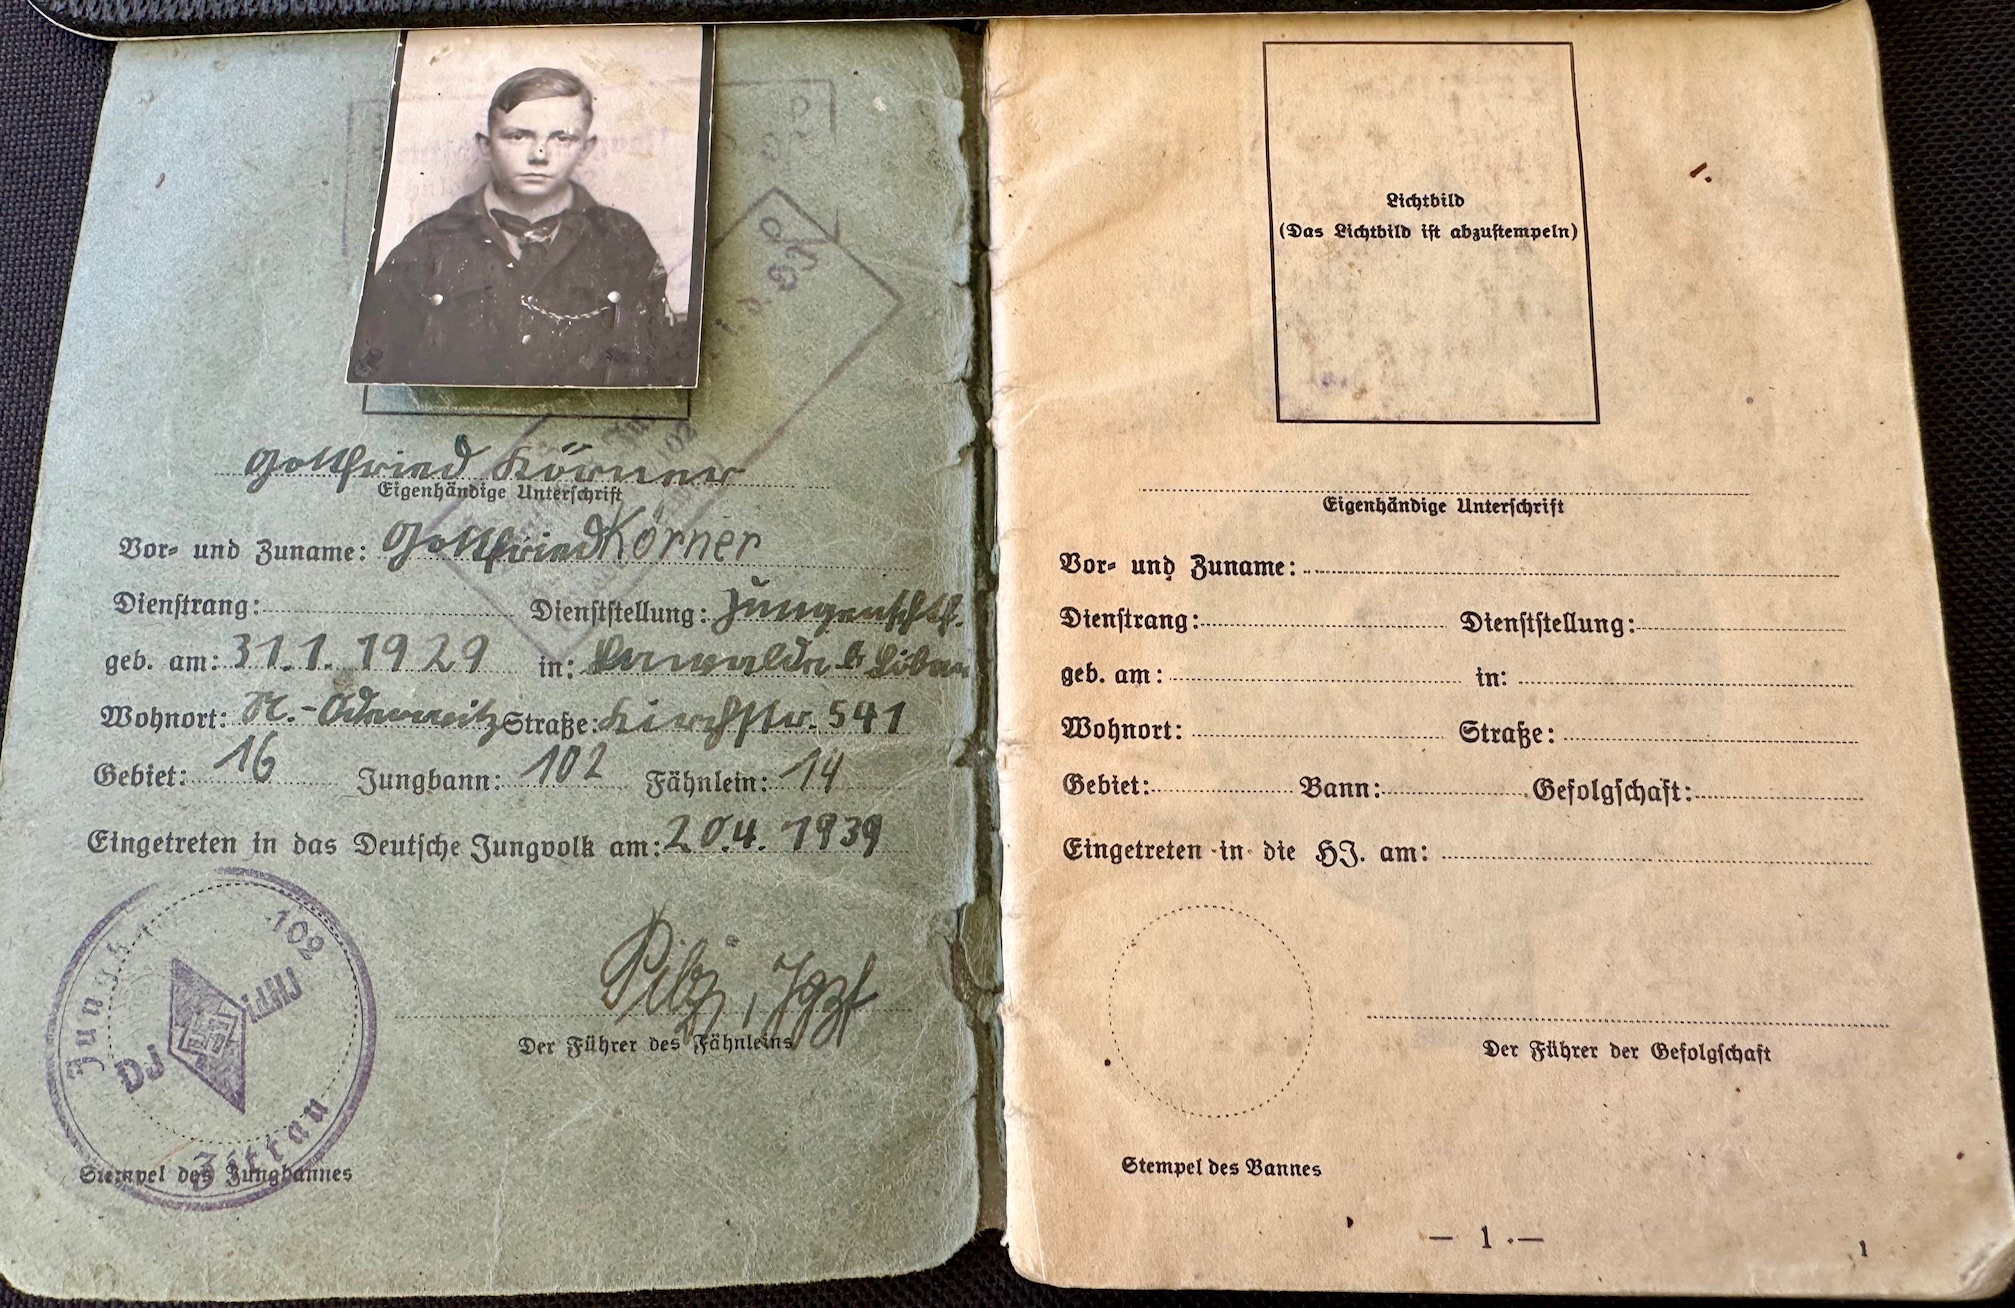 Gottfried Körner
Eigenhändige Unterschrift
Vor- und Zuname: Gottfried Körner
Dienstrang: Dienststellung: Jungenschftf.
geb. am: 31.1.1929 in: Lawalde b Löbau
Wohnort: N.-Oderwitz Straße: Kirchstr. 541
Gebiet: 16 Jungbann: 102 Fähnlein: 14
Eingetreten in das Deutsche Jungvolk am: 20.4. 1939
Pilz, Jgzf
Der Führer des Fähnleins
102
DJ
Zittau
Stempel des Jungbannes
Lichtbild
(Das Lichtbild ist abzustempeln)
Eigenhändige Unterschrift
Vor- und Zuname:
Dienstrang: Dienststellung:
geb. am: in:
Wohnort: Straße:
Gebiet: Bann: Gefolgschaft:
Eingetreten in die HJ. am:
Der Führer der Gefolgschaft
Stempel des Bannes
— 1 —
1